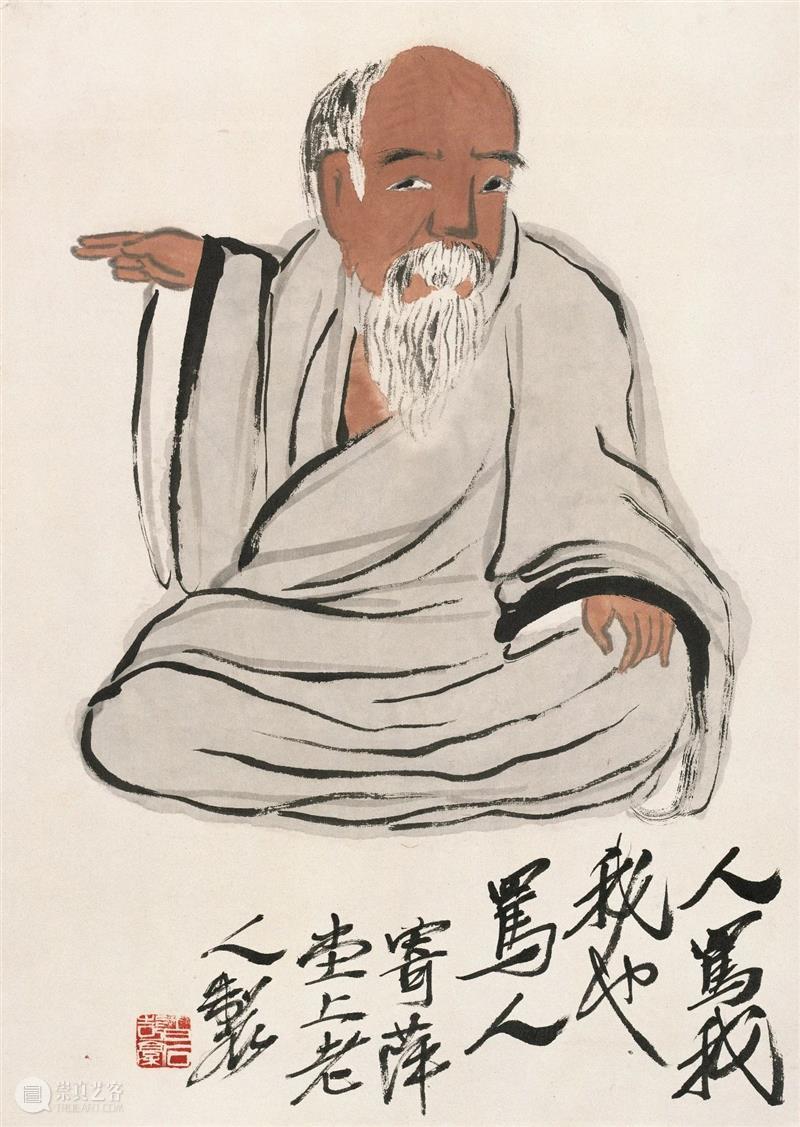 人骂我
我也
骂人
寄萍
堂上老
人製
崇真艺客
TRUEART.COM